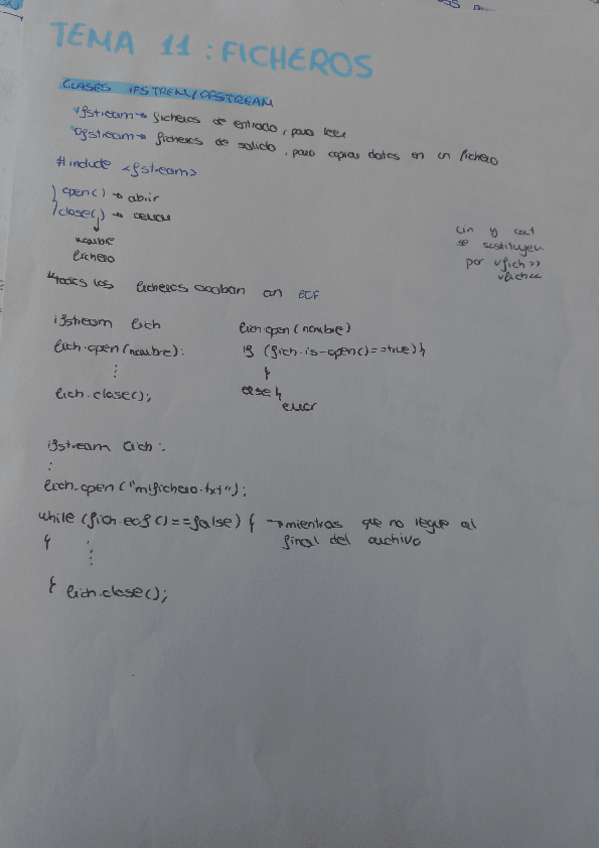 TEMA 11 : FICHEROS
CLASES IFSTREM/OFSTREAM
ifstream → ficheros de entrada, para leer
ofstream → ficheros de salida, para copiar datos en un fichero
#include <fstream>
open() → abrir
close() → cerrar
nombre
fichero
cin y cout
se sustituyen
por fich>>
fich<<
*todos los ficheros acaban en EOF
ifstream fich
fich.open(nombre);
⋮
fich.close();
fich.open(nombre)
if (fich.is-open()==true){
}
else{
error
ifstream fich;
⋮
fich.open("mifichero.txt");
while (fich.eof()==false) { → mientras que no llegue al
final del archivo
{
⋮
} fich.close();